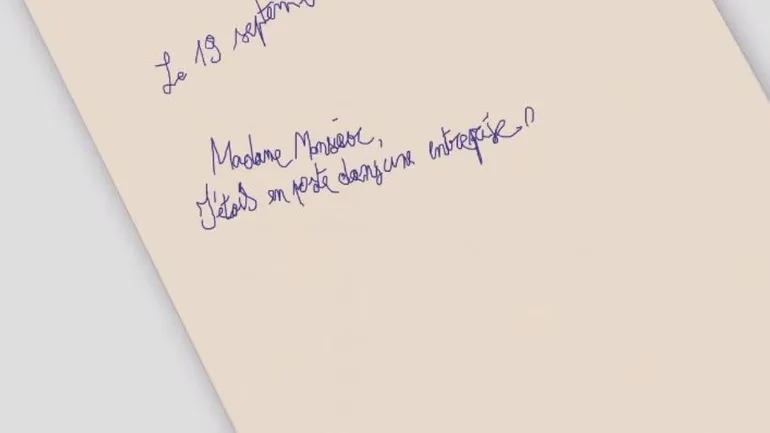 Le 19 septem
Madame Monsieur,
J'étais en poste dans une entreprise